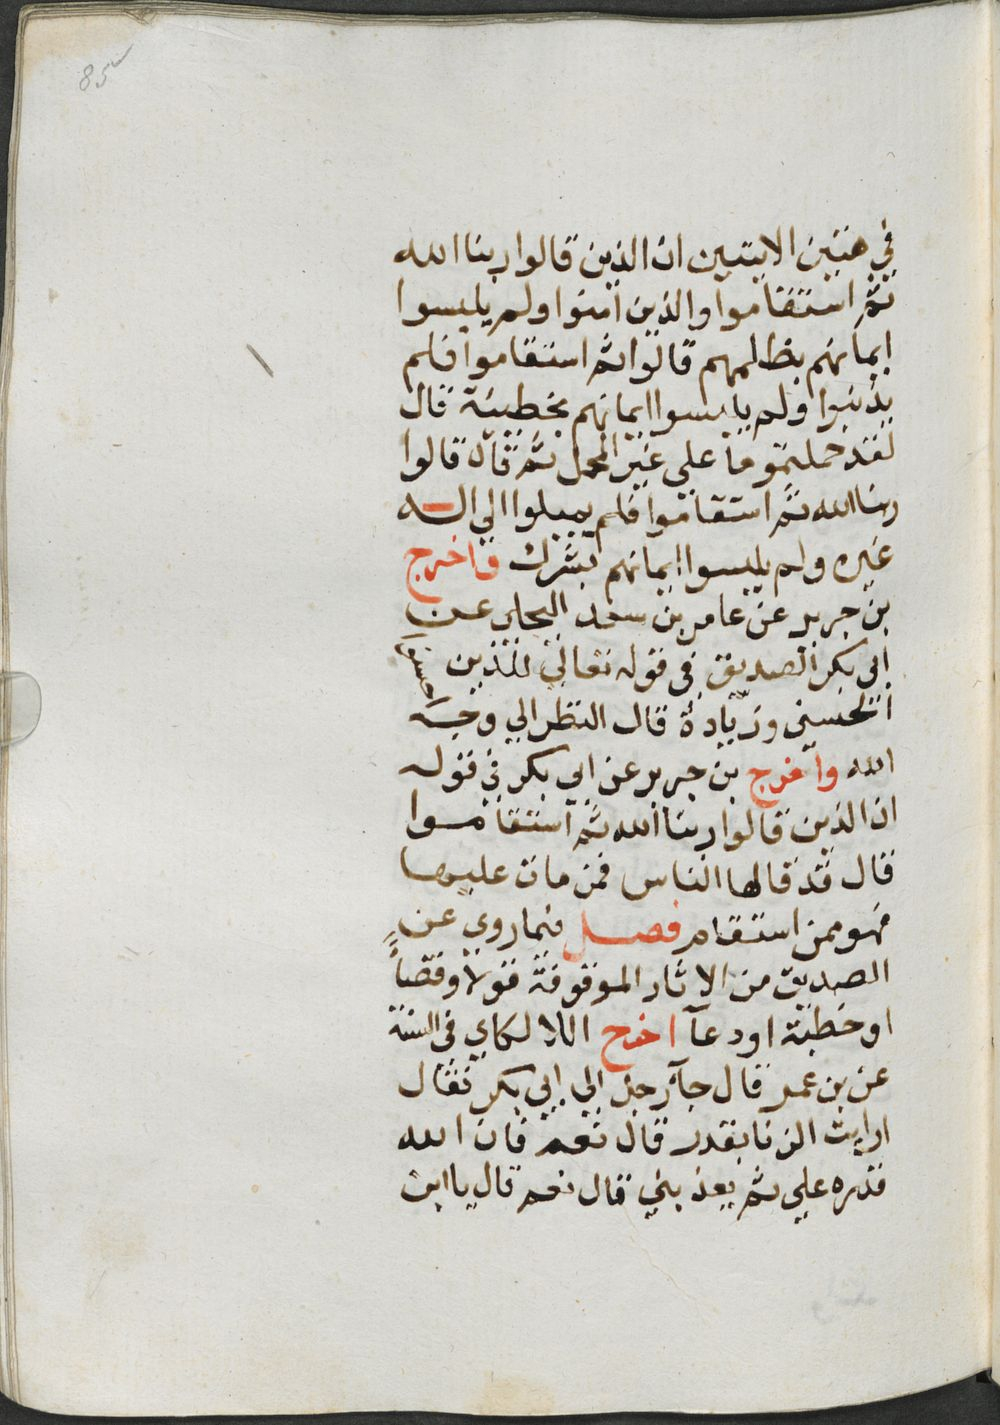 85
في هتين الايتين ان الذين قالوا ربنا الله
ثم استقاموا والذين امنوا ولم يلبسوا
ايمانهم بظلمهم قالوا ثم استقاموا فلم
يذنبوا ولم يلبسوا ايمانهم بخطيئة قال
لقد حملتموها على غير المحمل ثم قال قالوا
ربنا الله ثم استقاموا فلم يميلوا الي اله
غيره ولم يلبسوا ايمانهم بشرك واخرج
بن جرير عن عامر بن سعد البجلي عن
ابي بكر الصديق في قوله تعالي للذين احسنوا
الحسني وزيادة قال النظر الي وجه
الله واخرج بن جرير عن ابي بكر في قوله
ان الذين قالوا ربنا الله ثم استقاموا
قال قد قالها الناس فمن مات عليها
فهو ممن استقام فصل فيما روي عن
الصديق من الاثار الموقوفة قولا وقضاً
او خطبة او دعآ اخرج اللالكاي في السنة
عن بن عمر قال جآ رجل الي ابي بكر فقال
ارايت الزنا بقدر قال نعم قال فان الله
قدره علي ثم يعذبني قال نعم قال يا ابن